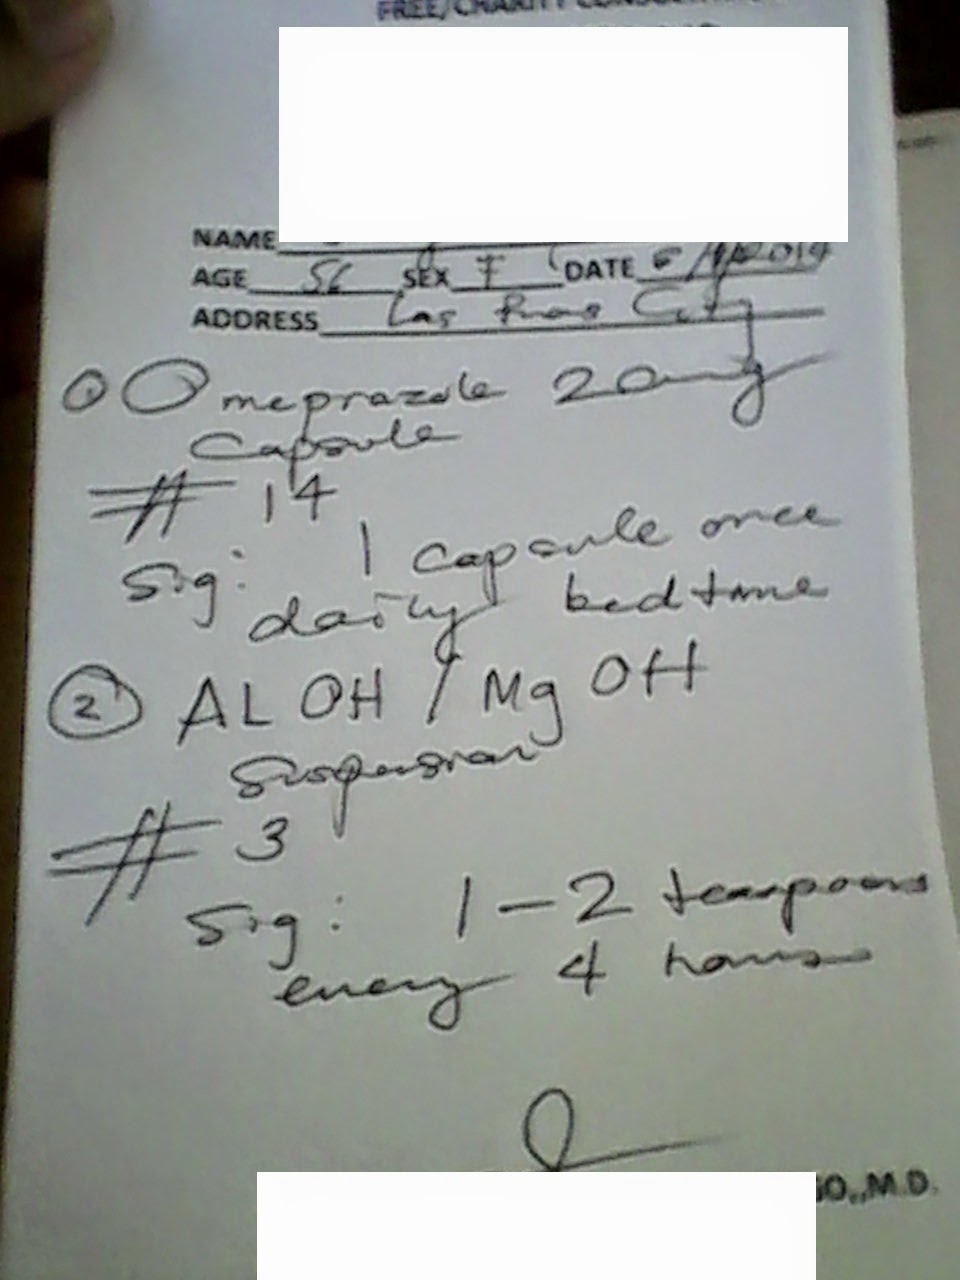 FREE/CHARITY
NAME
AGE 56 SEX F DATE
ADDRESS Las Pinas City
1 Omeprazole 20mg
Capsule
# 14
Sig: 1 capsule once
daily bedtime
2 AL OH / Mg OH
Suspension
# 3
Sig: 1-2 teaspoons
every 4 hours
GO,,M.D.